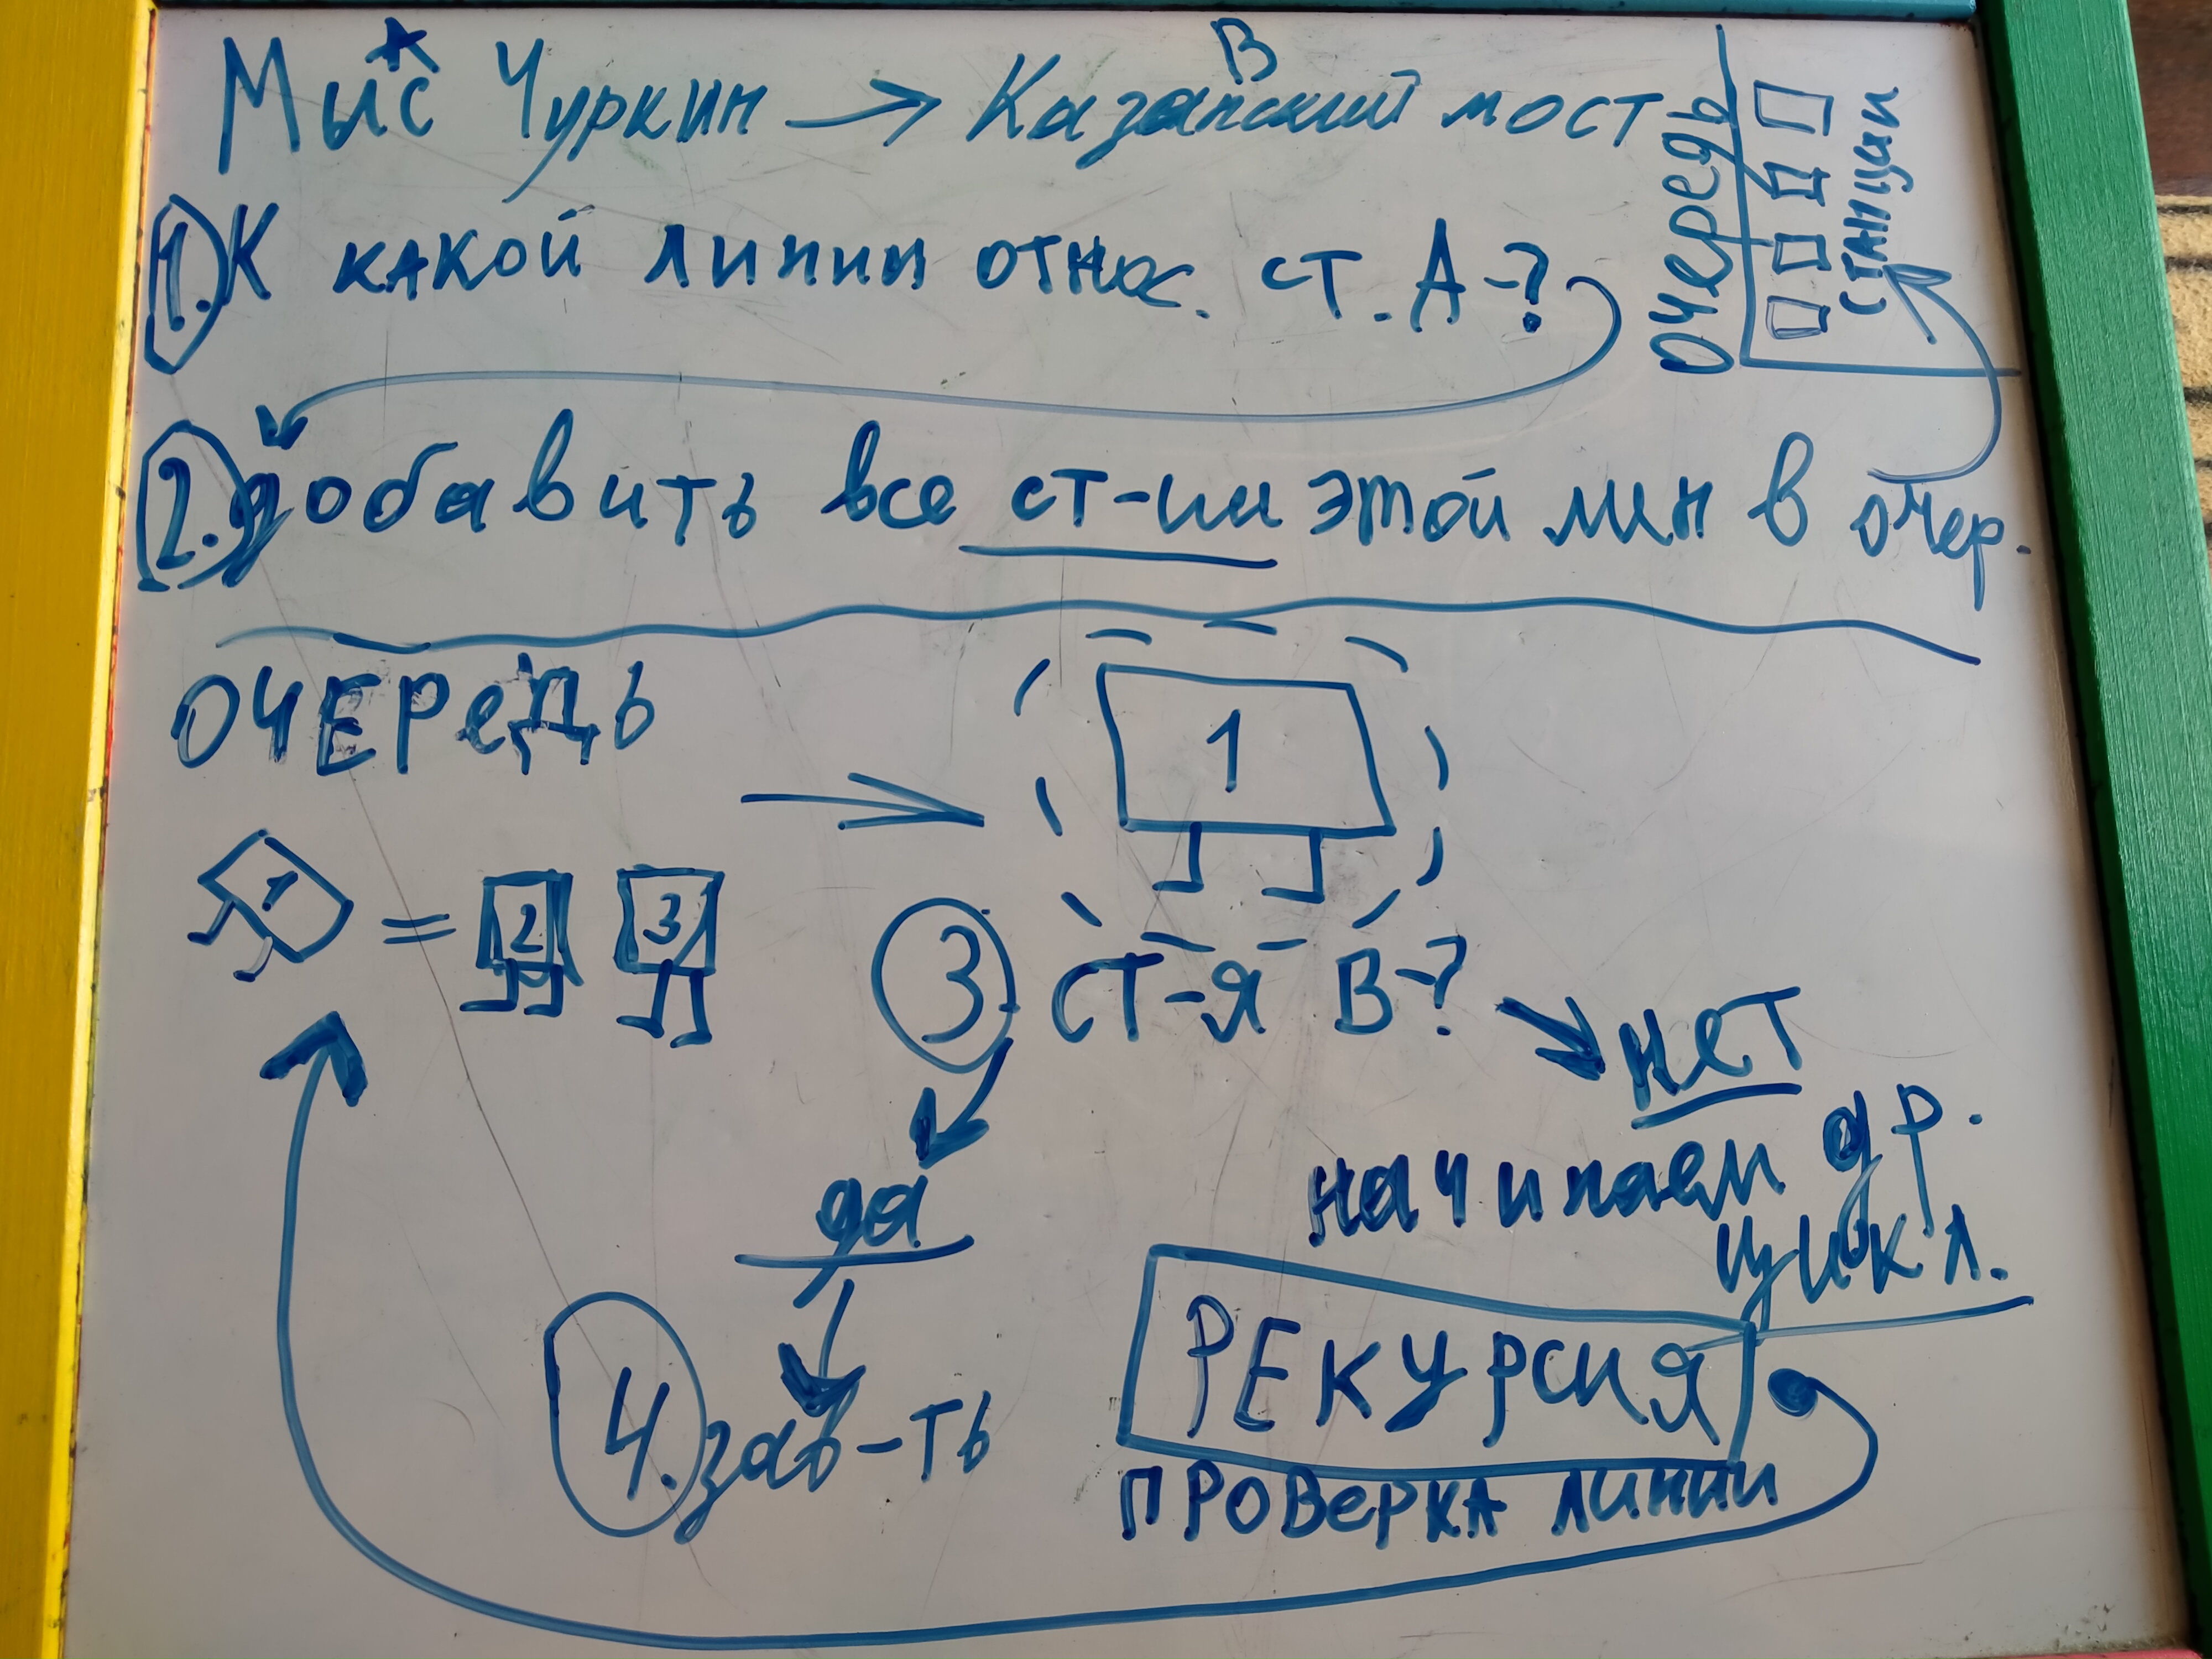 А В
Мыс Чуркин → Казанский мост
очередь
станции
1. К какой линии относ. ст. А-?
2. добавить все ст-ии этой лин в очер.
ОЧЕРЕДЬ
1
1 = 2 3
3. ст-я В-?
нет
да
начинаем др.
цикл.
РЕКУРСИЯ
4. зав-ть
ПРОВЕРКА ЛИНИИ